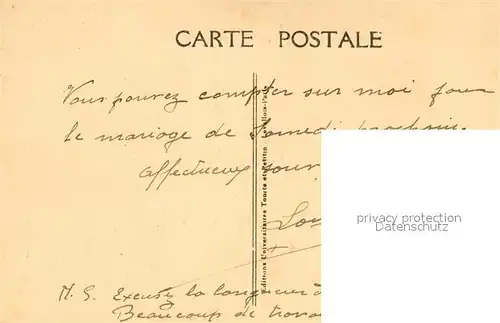 CARTE POSTALE
Vous pouvez compter sur moi pour
le mariage de Samedi prochain.
affectueux
Editions Universitaires Tourte et Petitin
privacy protection
Datenschutz
Excusez la longueur
Beaucoup de